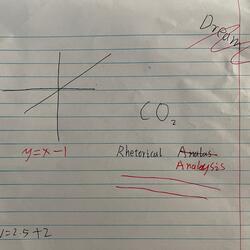 Dream
CO₂
y=x-1
Rhetorical Analus
Analysis
=2.5+2